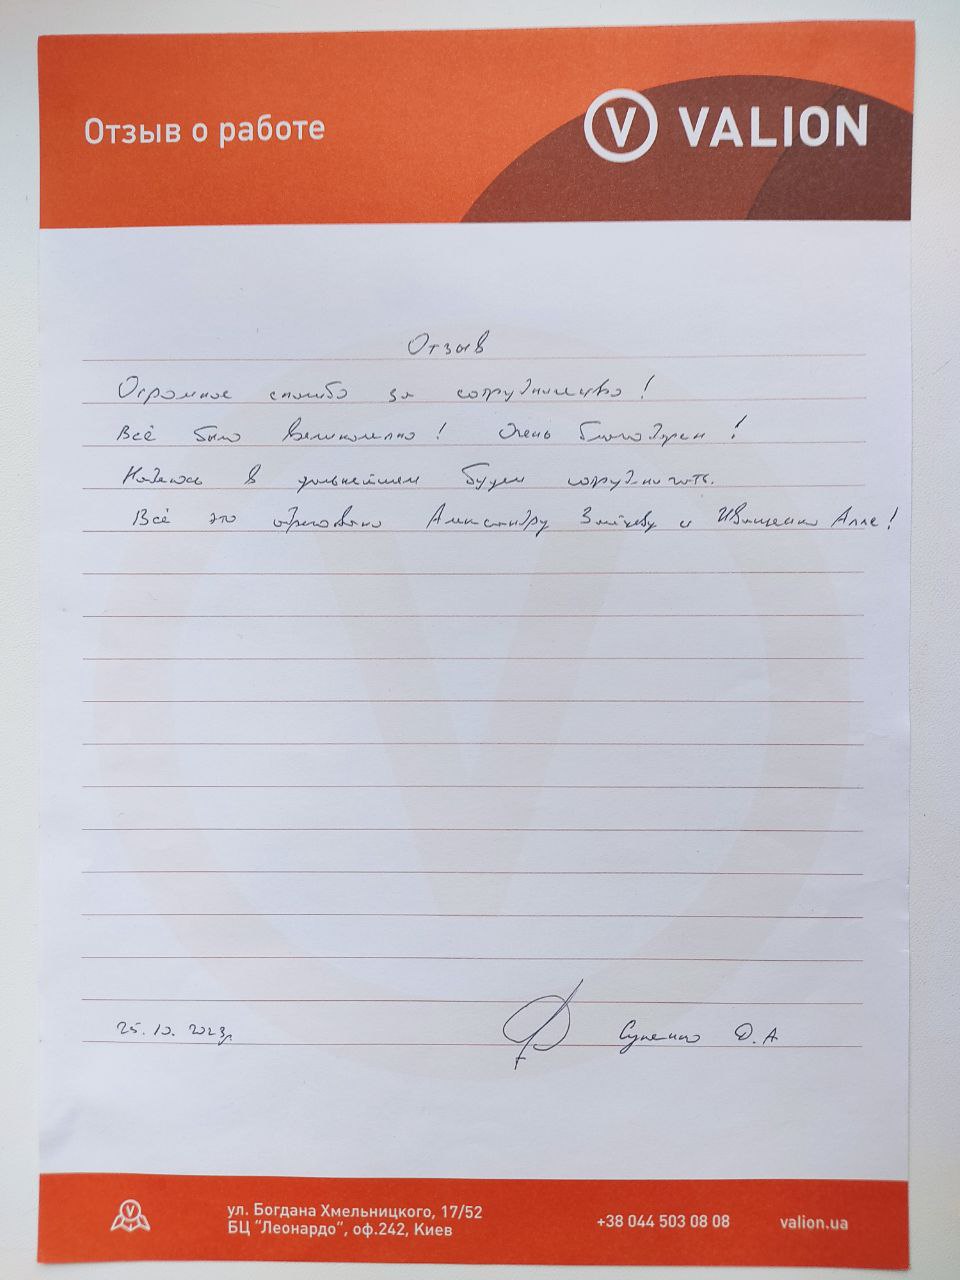 Отзыв о работе
VALION
Отзыв
Огромное спасибо за сотрудничество!
Всё было великолепно! Очень благодарен!
Надеюсь в дальнейшем будем сотрудничать.
Всё это адресовано Александру и Иващенко Алле!
25.10.2023г.
Д.А
ул. Богдана Хмельницкого, 17/52
БЦ “Леонардо”, оф.242, Киев
+38 044 503 08 08
valion.ua